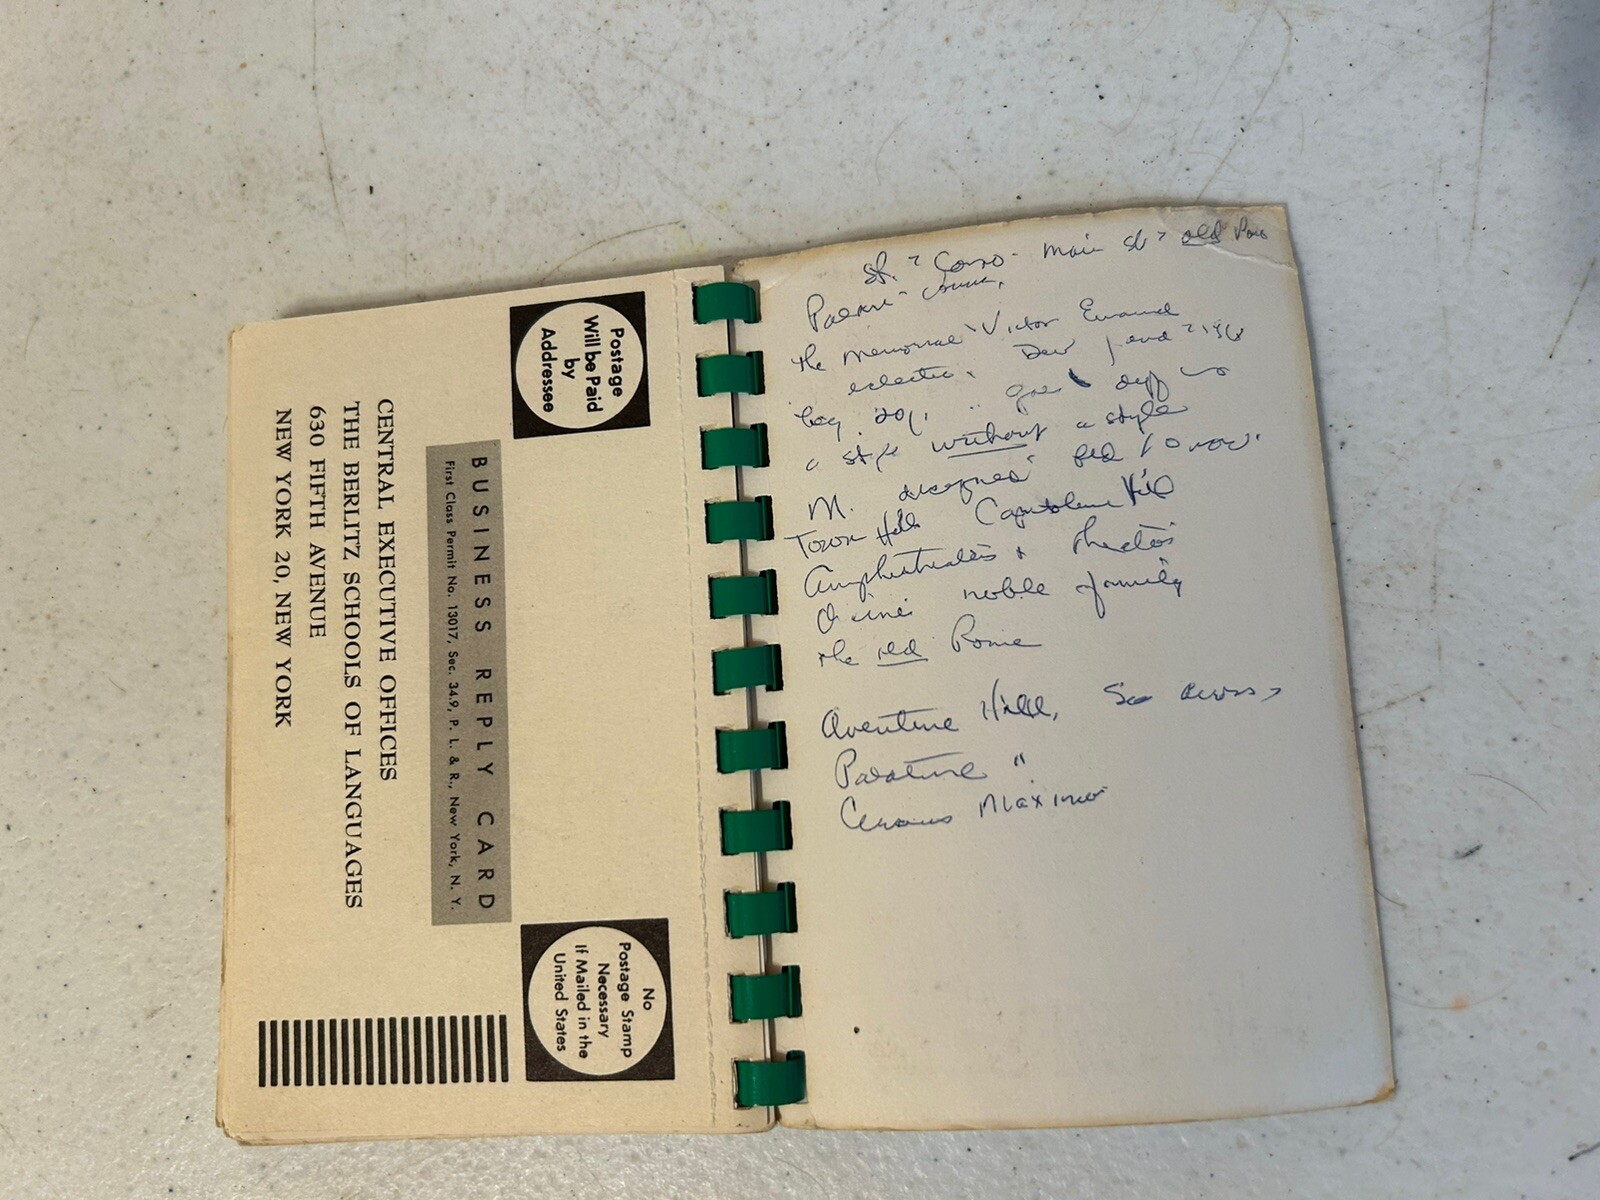 Postage
Will be Paid
by
Addressee
No
Postage Stamp
Necessary
If Mailed in the
United States
BUSINESS REPLY CARD
First Class Permit No. 13017, Sec. 34.9, P. L. & R., New York, N. Y.
CENTRAL EXECUTIVE OFFICES
THE BERLITZ SCHOOLS OF LANGUAGES
630 FIFTH AVENUE
NEW YORK 20, NEW YORK
St. Corso - main st old
the memorial Victor
eclectic
a style without a style
M. designed
Town Hall Capitoline Hill
Amphitheaters +
noble family
the old Rome
Aventine Hill, across
Palatine "
Circus Maximus